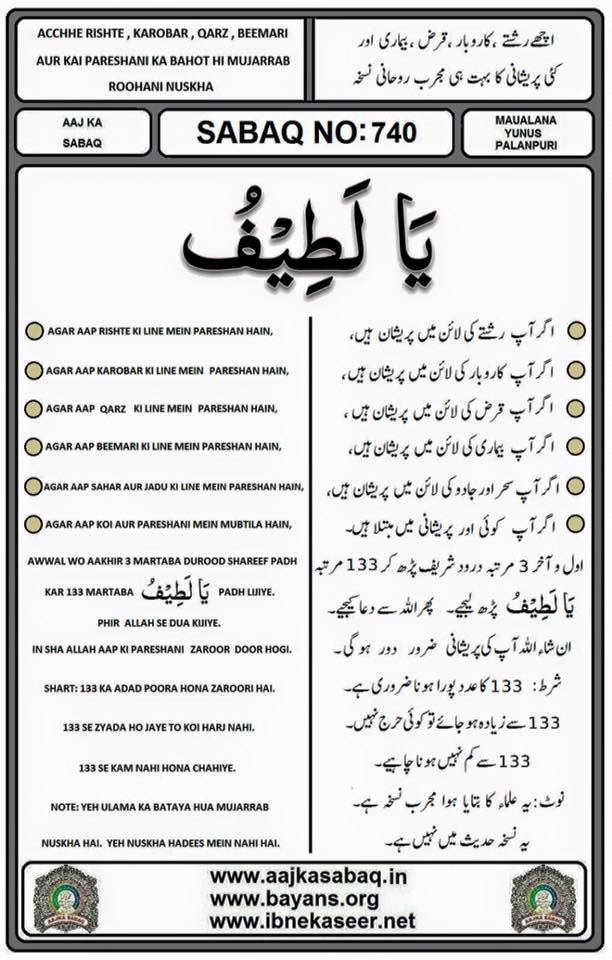 ACCHHE RISHTE , KAROBAR , QARZ , BEEMARI
AUR KAI PARESHANI KA BAHOT HI MUJARRAB
ROOHANI NUSKHA
اچھے رشتے ، کاروبار ، قرض ، بیماری اور
کئی پریشانی کا بہت ہی مجرب روحانی نسخہ
AAJ KA
SABAQ
SABAQ NO: 740
MAUALANA
YUNUS
PALANPURI
يَا لَطِيْفُ
AGAR AAP RISHTE KI LINE MEIN PARESHAN HAIN,
AGAR AAP KAROBAR KI LINE MEIN PARESHAN HAIN,
AGAR AAP QARZ KI LINE MEIN PARESHAN HAIN,
AGAR AAP BEEMARI KI LINE MEIN PARESHAN HAIN,
AGAR AAP SAHAR AUR JADU KI LINE MEIN PARESHAN HAIN,
AGAR AAP KOI AUR PARESHANI MEIN MUBTILA HAIN,
AWWAL WO AAKHIR 3 MARTABA DUROOD SHAREEF PADH
KAR 133 MARTABA يَا لَطِيْفُ PADH LIJIYE.
PHIR ALLAH SE DUA KIJIYE.
IN SHA ALLAH AAP KI PARESHANI ZAROOR DOOR HOGI.
SHART: 133 KA ADAD POORA HONA ZAROORI HAI.
133 SE ZYADA HO JAYE TO KOI HARJ NAHI.
133 SE KAM NAHI HONA CHAHIYE.
NOTE: YEH ULAMA KA BATAYA HUA MUJARRAB
NUSKHA HAI. YEH NUSKHA HADEES MEIN NAHI HAI.
اگر آپ رشتے کی لائن میں پریشان ہیں،
اگر آپ کاروبار کی لائن میں پریشان ہیں،
اگر آپ قرض کی لائن میں پریشان ہیں ،
اگر آپ بیماری کی لائن میں پریشان ہیں،
اگر آپ سحر اور جادو کی لائن میں پریشان ہیں،
اگر آپ کوئی اور پریشانی میں مبتلا ہیں۔
اول و آخر 3 مرتبہ درود شریف پڑھ کر 133 مرتبہ
يَا لَطِيْفُ پڑھ لیجیے۔ پھر اللہ سے دعا کیجیے۔
ان شاء اللہ آپ کی پریشانی ضرور دور ہوگی۔
شرط: 133 کا عدد پورا ہونا ضروری ہے۔
133 سے زیادہ ہو جائے تو کوئی حرج نہیں۔
133 سے کم نہیں ہونا چاہیے۔
نوٹ: یہ علماء کا بتایا ہوا مجرب نسخہ ہے۔
یہ نسخہ حدیث میں نہیں ہے۔
www.aajkasabaq.in
www.bayans.org
www.ibnekaseer.net
AAJKA SABAQ
AAJKA SABAQ